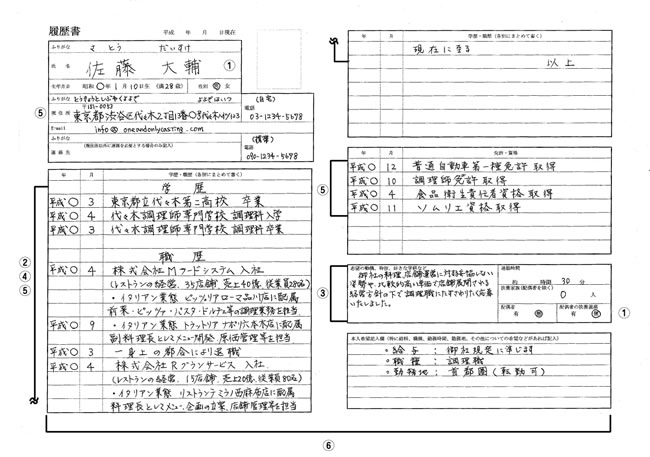 履歴書
平成　年　月　日現在
ふりがな
さとう　だいすけ
氏名
佐藤　大輔
①
生年月日　昭和〇年1月10日生（満28歳）
性別　男　女
ふりがな　とうきょうとしぶやくよよぎ　よよぎはいつ
（自宅）
電話
03-1234-5678
⑤
現住所
〒151-0053
東京都渋谷区代々木2丁目
E-mail
info@oneandonlycasting.com
ふりがな
（携帯）
電話
090-1234-5678
連絡先
（現住所以外に連絡を必要とする場合のみ記入）
年　月　学歴・職歴（各別にまとめて書く）
学歴
平成〇　3　東京都立代々木第二高校　卒業
平成〇　4　代々木調理師専門学校　調理科入学
平成〇　3　代々木調理師専門学校　調理科卒業
②
④
⑤
職歴
平成〇　4　株式会社Mフードシステム入社
（レストランの経営、35店舗、売上40億、従業員280名）
・イタリアン業態　ピッツェリアローマ品川店に配属
前菜・ピッツァ・パスタ・ドルチェ等の調理業務を担当
平成〇　9　・イタリアン業態　トラットリアナポリ六本木店に配属
副料理長としてメニュー開発、原価管理等を担当
平成〇　3　一身上の都合により退職
平成〇　4　株式会社Rプランサービス　入社
（レストランの経営、15店舗、売上20億、従業員80名）
・イタリアン業態　リストランテミラノ西麻布店に配属
料理長としてメニュー、企画の立案、店舗管理等を担当
年　月　学歴・職歴（各別にまとめて書く）
現在に至る
以上
年　月　免許・資格
平成〇　12　普通自動車第一種免許　取得
平成〇　10　調理師免許　取得
平成〇　4　食品衛生責任者資格　取得
平成〇　11　ソムリエ資格　取得
⑤
志望の動機、特技、好きな学科など
御社の料理、店舗運営に対し妥協しない
姿勢や、比較的高い単価で店舗展開できる
経営方針の下で調理職にたずさわりたく応募
いたしました。
③
通勤時間
約　時間　30　分
扶養家族（配偶者を除く）
0　人
配偶者
有　無
配偶者の扶養義務
有　無
①
本人希望記入欄（特に給料、職種、勤務時間、勤務地、その他についての希望などがあれば記入）
・給与　：　御社規定に準じます
・職種　：　調理職
・勤務地　：　首都圏（転勤可）
⑥